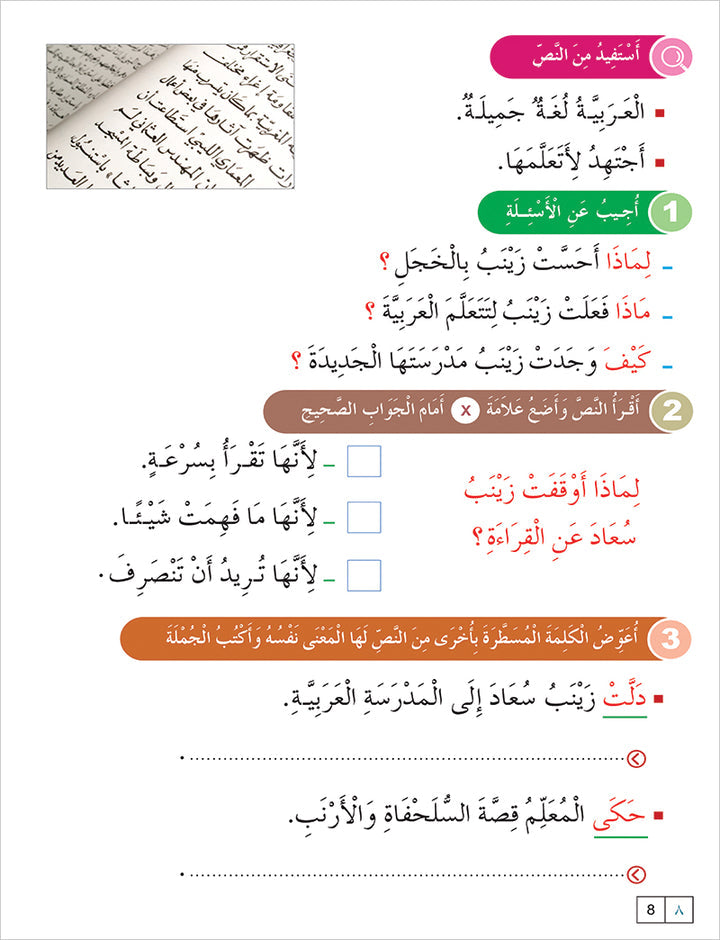 أَسْتَفِيدُ مِنَ النَّصِّ
الْعَرَبِيَّةُ لُغَةٌ جَمِيلَةٌ.
أَجْتَهِدُ لِأَتَعَلَّمَهَا.
1 أُجِيبُ عَنِ الْأَسْئِلَةِ
ـ لِمَاذَا أَحَسَّتْ زَيْنَبُ بِالْخَجَلِ ؟
ـ مَاذَا فَعَلَتْ زَيْنَبُ لِتَتَعَلَّمَ الْعَرَبِيَّةَ ؟
ـ كَيْفَ وَجَدَتْ زَيْنَبُ مَدْرَسَتَهَا الْجَدِيدَةَ ؟
2 أَقْرَأُ النَّصَّ وَأَضَعُ عَلَامَةَ x أَمَامَ الْجَوَابِ الصَّحِيحِ
لِمَاذَا أَوْقَفَتْ زَيْنَبُ
سُعَادَ عَنِ الْقِرَاءَةِ ؟
ـ لِأَنَّهَا تَقْرَأُ بِسُرْعَةٍ.
ـ لِأَنَّهَا مَا فَهِمَتْ شَيْئًا.
ـ لِأَنَّهَا تُرِيدُ أَنْ تَنْصَرِفَ.
3 أُعَوِّضُ الْكَلِمَةَ الْمُسَطَّرَةَ بِأُخْرَى مِنَ النَّصِّ لَهَا الْمَعْنَى نَفْسُهُ وَأَكْتُبُ الْجُمْلَةَ
دَلَّتْ زَيْنَبُ سُعَادَ إِلَى الْمَدْرَسَةِ الْعَرَبِيَّةِ.
حَكَى الْمُعَلِّمُ قِصَّةَ السُّلَحْفَاةِ وَالْأَرْنَبِ.
8 ٨